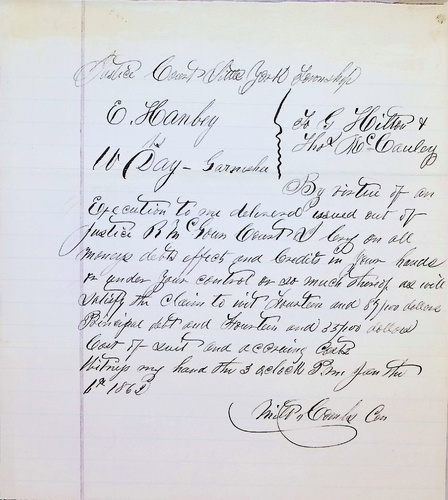 Justice Court Little York Township
E. Hanbey
vs
W Day - Garnishee
To G Hitton &
Thos McCauley
By virtue of an
Execution to me deliverd issued out of
Justice R Mc Court I levy on all
moneys debts effects and Credits in your hands
or under your control or so much thereof as will
Satisfy the claim to wit fourteen and 57/100 dollars
Principal debt and fourteen and 35/100 dollars
Cost of suit and accruing Costs
Witness my hand the 3 oclock P.m. Jan the
6th 1862
Combs Con